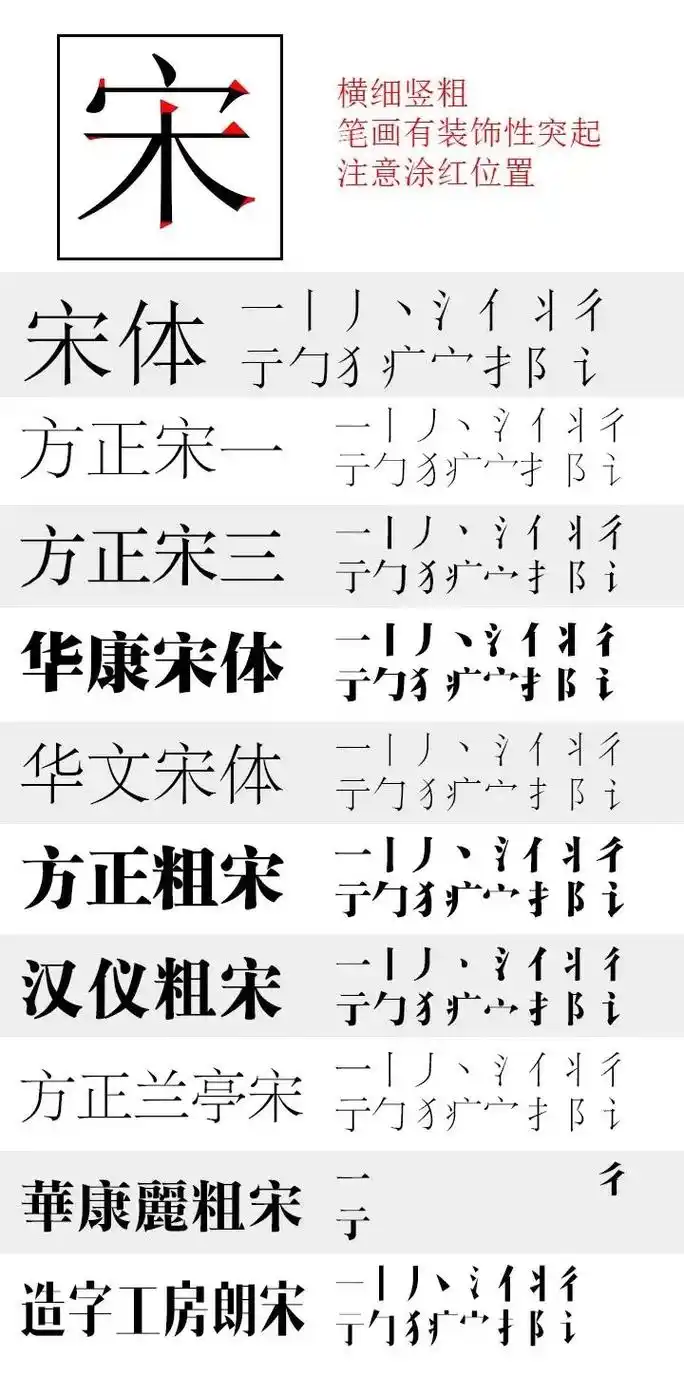 宋
横细竖粗
笔画有装饰性突起
注意涂红位置
宋体
一丨丿丶氵亻丬彳
亍勹犭疒宀扌阝讠
方正宋一
一丨丿丶氵亻丬彳
亍勹犭疒宀扌阝讠
方正宋三
一丨丿丶氵亻丬彳
亍勹犭疒宀扌阝讠
华康宋体
一丨丿丶氵亻丬彳
亍勹犭疒宀扌阝讠
华文宋体
一丨丿丶氵亻丬彳
亍勹犭疒宀扌阝讠
方正粗宋
一丨丿丶氵亻丬彳
亍勹犭疒宀扌阝讠
汉仪粗宋
一丨丿丶氵亻丬彳
亍勹犭疒宀扌阝讠
方正兰亭宋
一丨丿丶氵亻丬彳
亍勹犭疒宀扌阝讠
華康麗粗宋
一 彳
亍
造字工房朗宋
一丨丿丶氵亻丬彳
亍勹犭疒宀扌阝讠